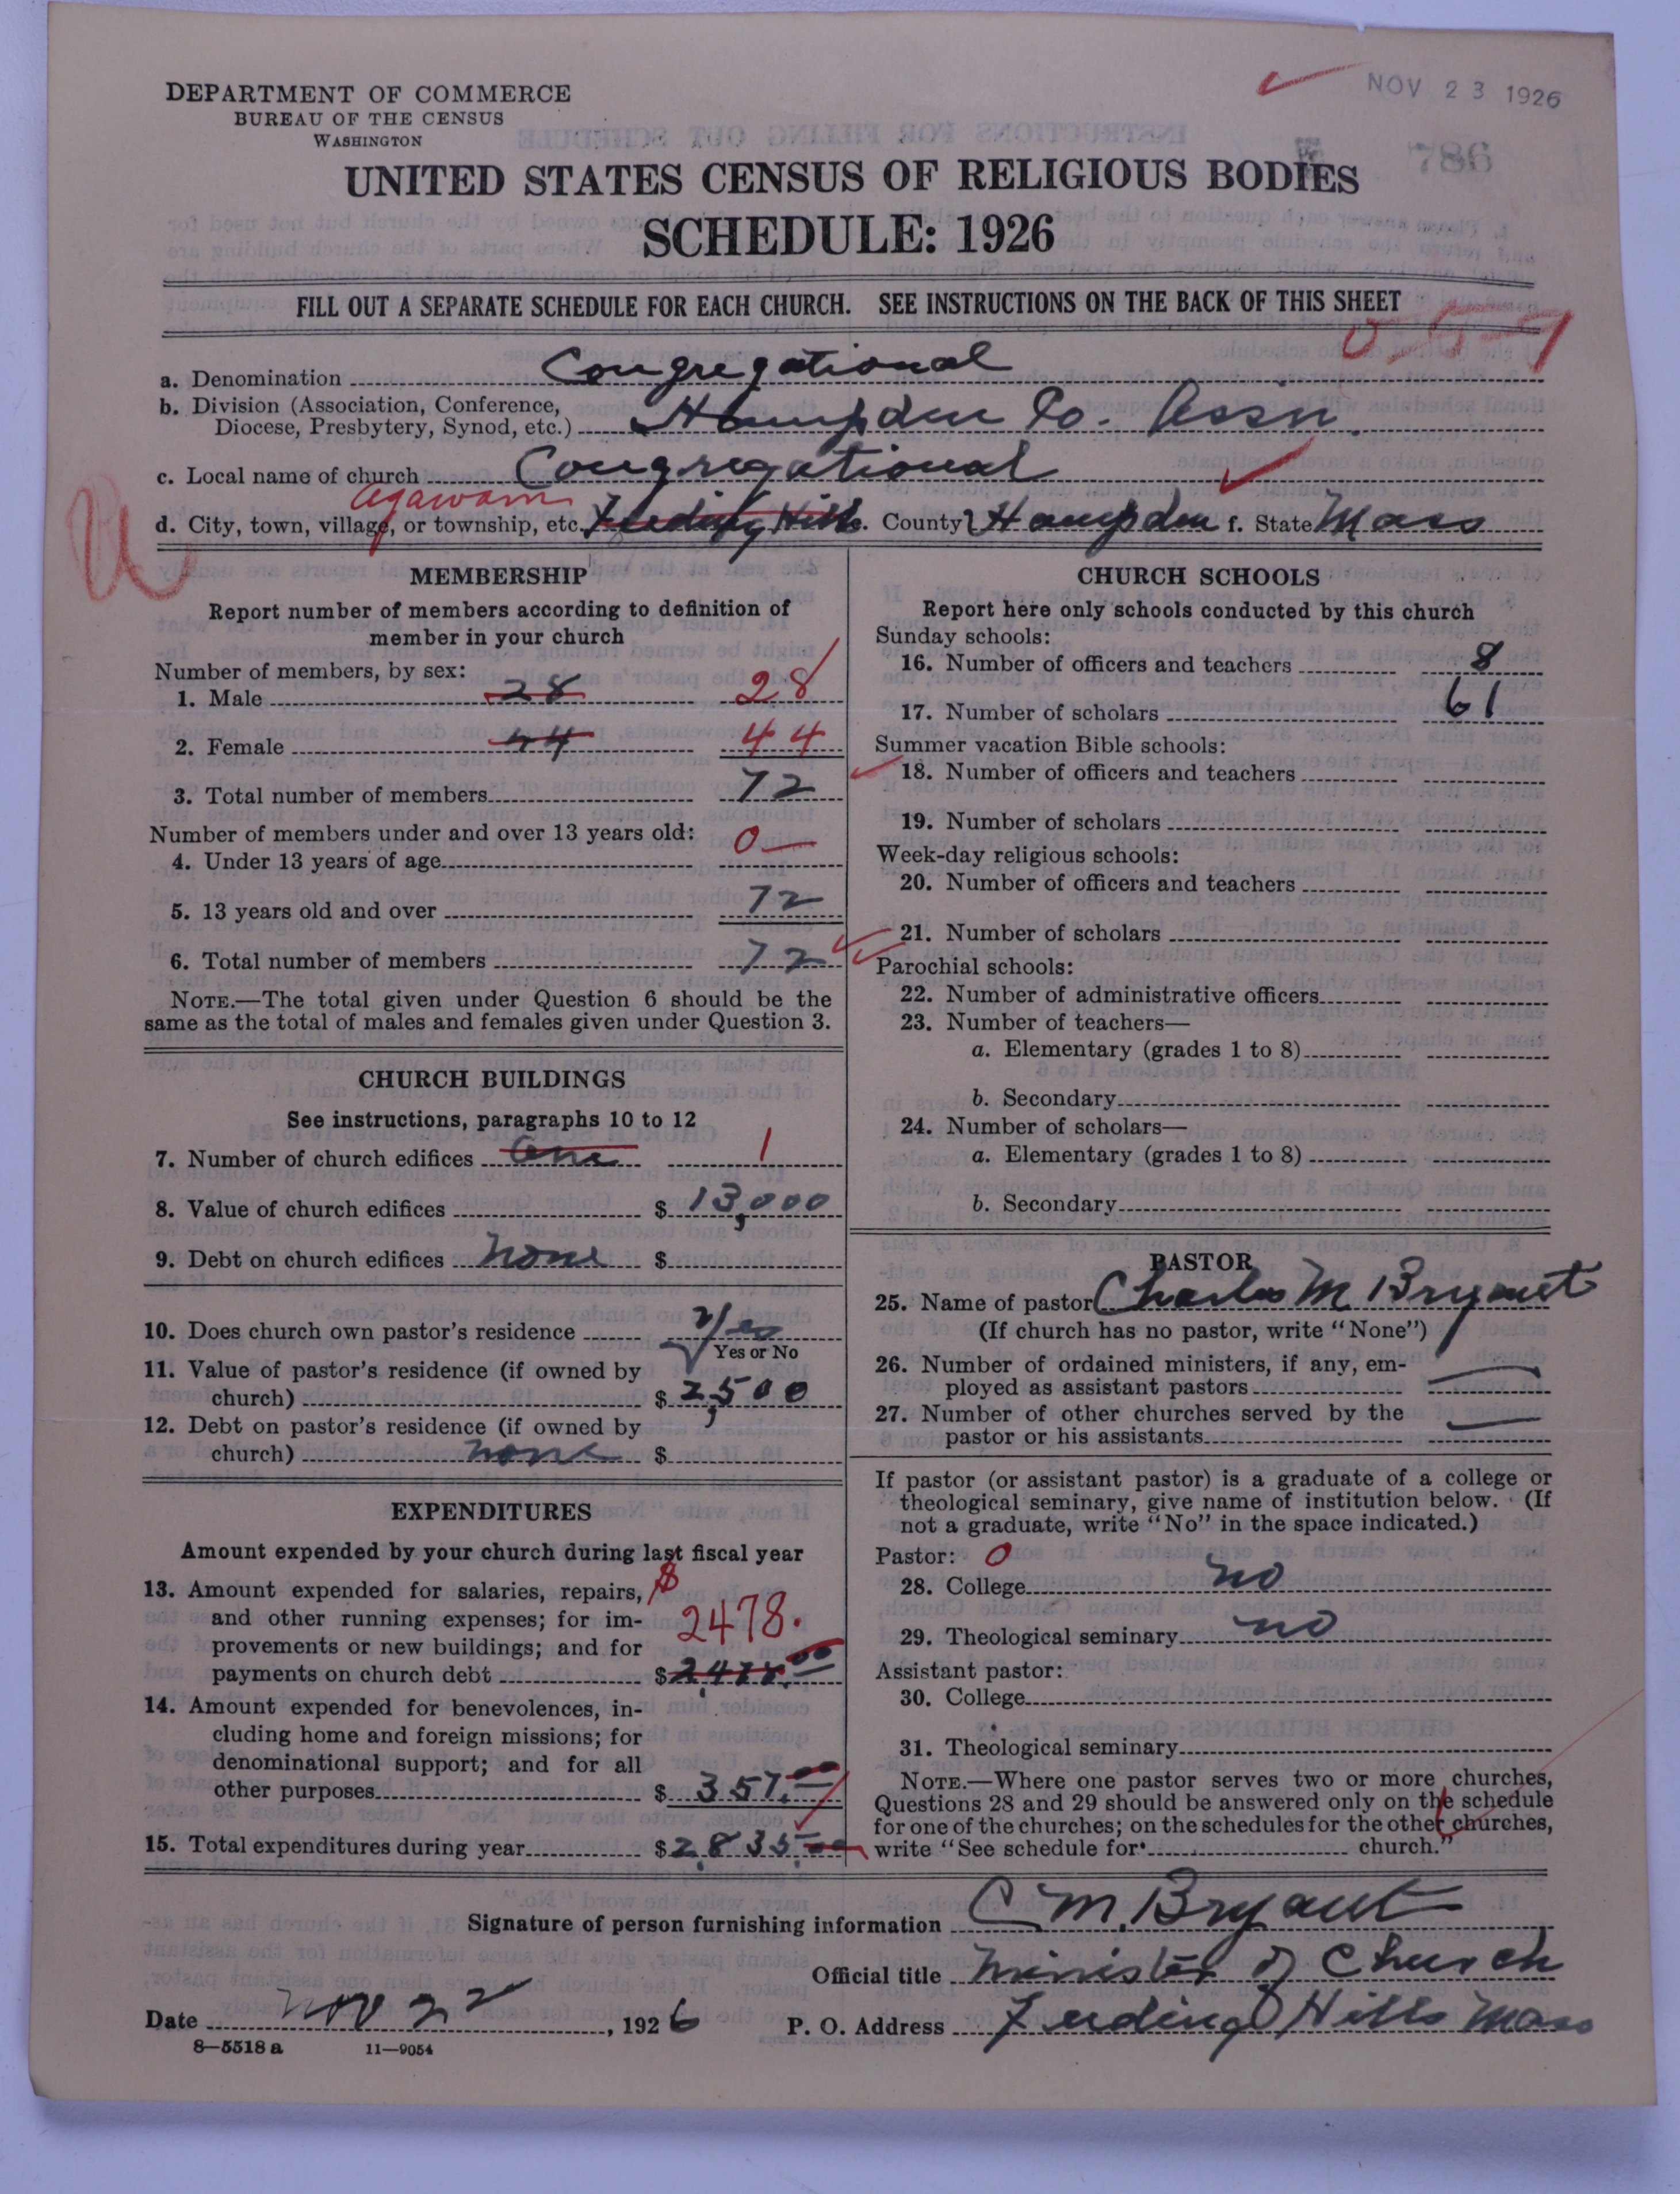 NOV 23 1926
DEPARTMENT OF COMMERCE
BUREAU OF THE CENSUS
WASHINGTON
786
UNITED STATES CENSUS OF RELIGIOUS BODIES
SCHEDULE: 1926
FILL OUT A SEPARATE SCHEDULE FOR EACH CHURCH. SEE INSTRUCTIONS ON THE BACK OF THIS SHEET
a. Denomination Congregational
b. Division (Association, Conference,
Diocese, Presbytery, Synod, etc.) Hampden Co. Assn.
c. Local name of church Congregational
Agawam
d. City, town, village, or township, etc. Feeding Hills. County Hampden f. State Mass
MEMBERSHIP
Report number of members according to definition of
member in your church
Number of members, by sex:
1. Male 28 28
2. Female 44 44
3. Total number of members 72
Number of members under and over 13 years old:
4. Under 13 years of age 0
5. 13 years old and over 72
6. Total number of members 72
NOTE.—The total given under Question 6 should be the
same as the total of males and females given under Question 3.
CHURCH BUILDINGS
See instructions, paragraphs 10 to 12
7. Number of church edifices One 1
8. Value of church edifices $ 13,000
9. Debt on church edifices None $
10. Does church own pastor's residence Yes
Yes or No
11. Value of pastor's residence (if owned by
church) $ 2,500
12. Debt on pastor's residence (if owned by
church) none $
EXPENDITURES
Amount expended by your church during last fiscal year
13. Amount expended for salaries, repairs, $
and other running expenses; for im- 2478.
provements or new buildings; and for
payments on church debt $2,478.00
14. Amount expended for benevolences, in-
cluding home and foreign missions; for
denominational support; and for all
other purposes $ 357.00
15. Total expenditures during year $2,835.00
CHURCH SCHOOLS
Report here only schools conducted by this church
Sunday schools:
16. Number of officers and teachers 8
17. Number of scholars 61
Summer vacation Bible schools:
18. Number of officers and teachers
19. Number of scholars
Week-day religious schools:
20. Number of officers and teachers
21. Number of scholars
Parochial schools:
22. Number of administrative officers
23. Number of teachers—
a. Elementary (grades 1 to 8)
b. Secondary
24. Number of scholars—
a. Elementary (grades 1 to 8)
b. Secondary
PASTOR
25. Name of pastor Charles M Bryant
(If church has no pastor, write "None")
26. Number of ordained ministers, if any, em-
ployed as assistant pastors —
27. Number of other churches served by the
pastor or his assistants —
If pastor (or assistant pastor) is a graduate of a college or
theological seminary, give name of institution below. (If
not a graduate, write "No" in the space indicated.)
Pastor: 0
28. College no
29. Theological seminary no
Assistant pastor:
30. College
31. Theological seminary
NOTE.—Where one pastor serves two or more churches,
Questions 28 and 29 should be answered only on the schedule
for one of the churches; on the schedules for the other churches,
write "See schedule for church."
Signature of person furnishing information C M. Bryant
Official title Minister of Church
Date Nov 22, 1926 P. O. Address Feeding Hills Mass
8—5518 a 11—9054